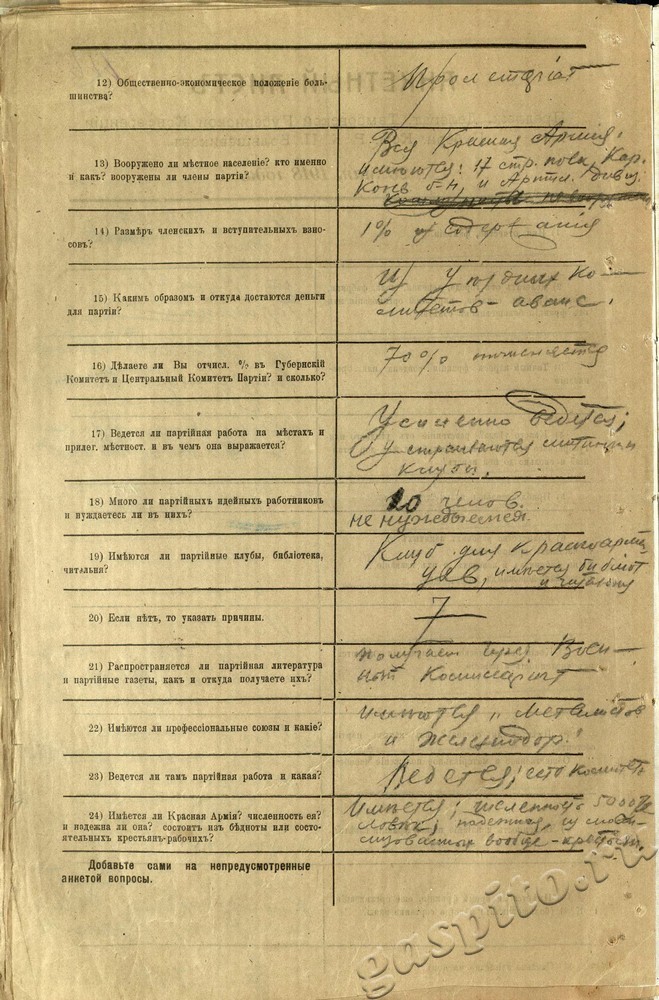 12) Общественно-экономическое положеніе боль-
шинства?
Пролетаріат
13) Вооружено ли мѣстное населеніе? кто именно
и какъ? вооружены ли члены партіи?
Вся Красная Армія,
имѣются: 17 стр. полк, Кар.
Конв. б-н, и Артил. дивиз.
14) Размѣръ членскихъ и вступительныхъ взно-
совъ?
1% из содержанія
15) Какимъ образомъ и откуда достаются деньги
для партіи?
Из Уѣздных Ко-
митетов - аванс.
16) Дѣлаете ли Вы отчисл. % въ Губернскій
Комитет и Центральный Комитет Партіи? и сколько?
70%
17) Ведется ли партійная работа на мѣстахъ и
прилег. мѣстност. и въ чемъ она выражается?
Усиленно ведется;
устраиваются митинги
клубы.
18) Много ли партійныхъ идейныхъ работниковъ
и нуждаетесь ли въ нихъ?
20 челов.
не нуждаемся.
19) Имѣются ли партійные клубы, библіотека,
читальня?
Клуб для красноармей
цев, имѣется библіот
и читальня
20) Если нѣтъ, то указать причины.
21) Распространяется ли партійная литература
и партійные газеты, какъ и откуда получаете ихъ?
получаем через Воен-
ный Комиссаріат
22) Имѣются ли профессіональные союзы и какіе?
имѣются „металистов
и Железнодор."
23) Ведется ли тамъ партійная работа и какая?
Ведется; есть комитет
24) Имѣется ли Красная Армія? численность ея?
и надежна ли она? состоитъ изъ бѣдноты или состо-
ятельныхъ крестьянъ-рабочихъ?
Имѣется; численность 5000 че
ловѣк; надежная, из моби-
лизованных вообще - крестьян.
Добавьте сами на непредусмотренные
анкетой вопросы.
gaspito.ru